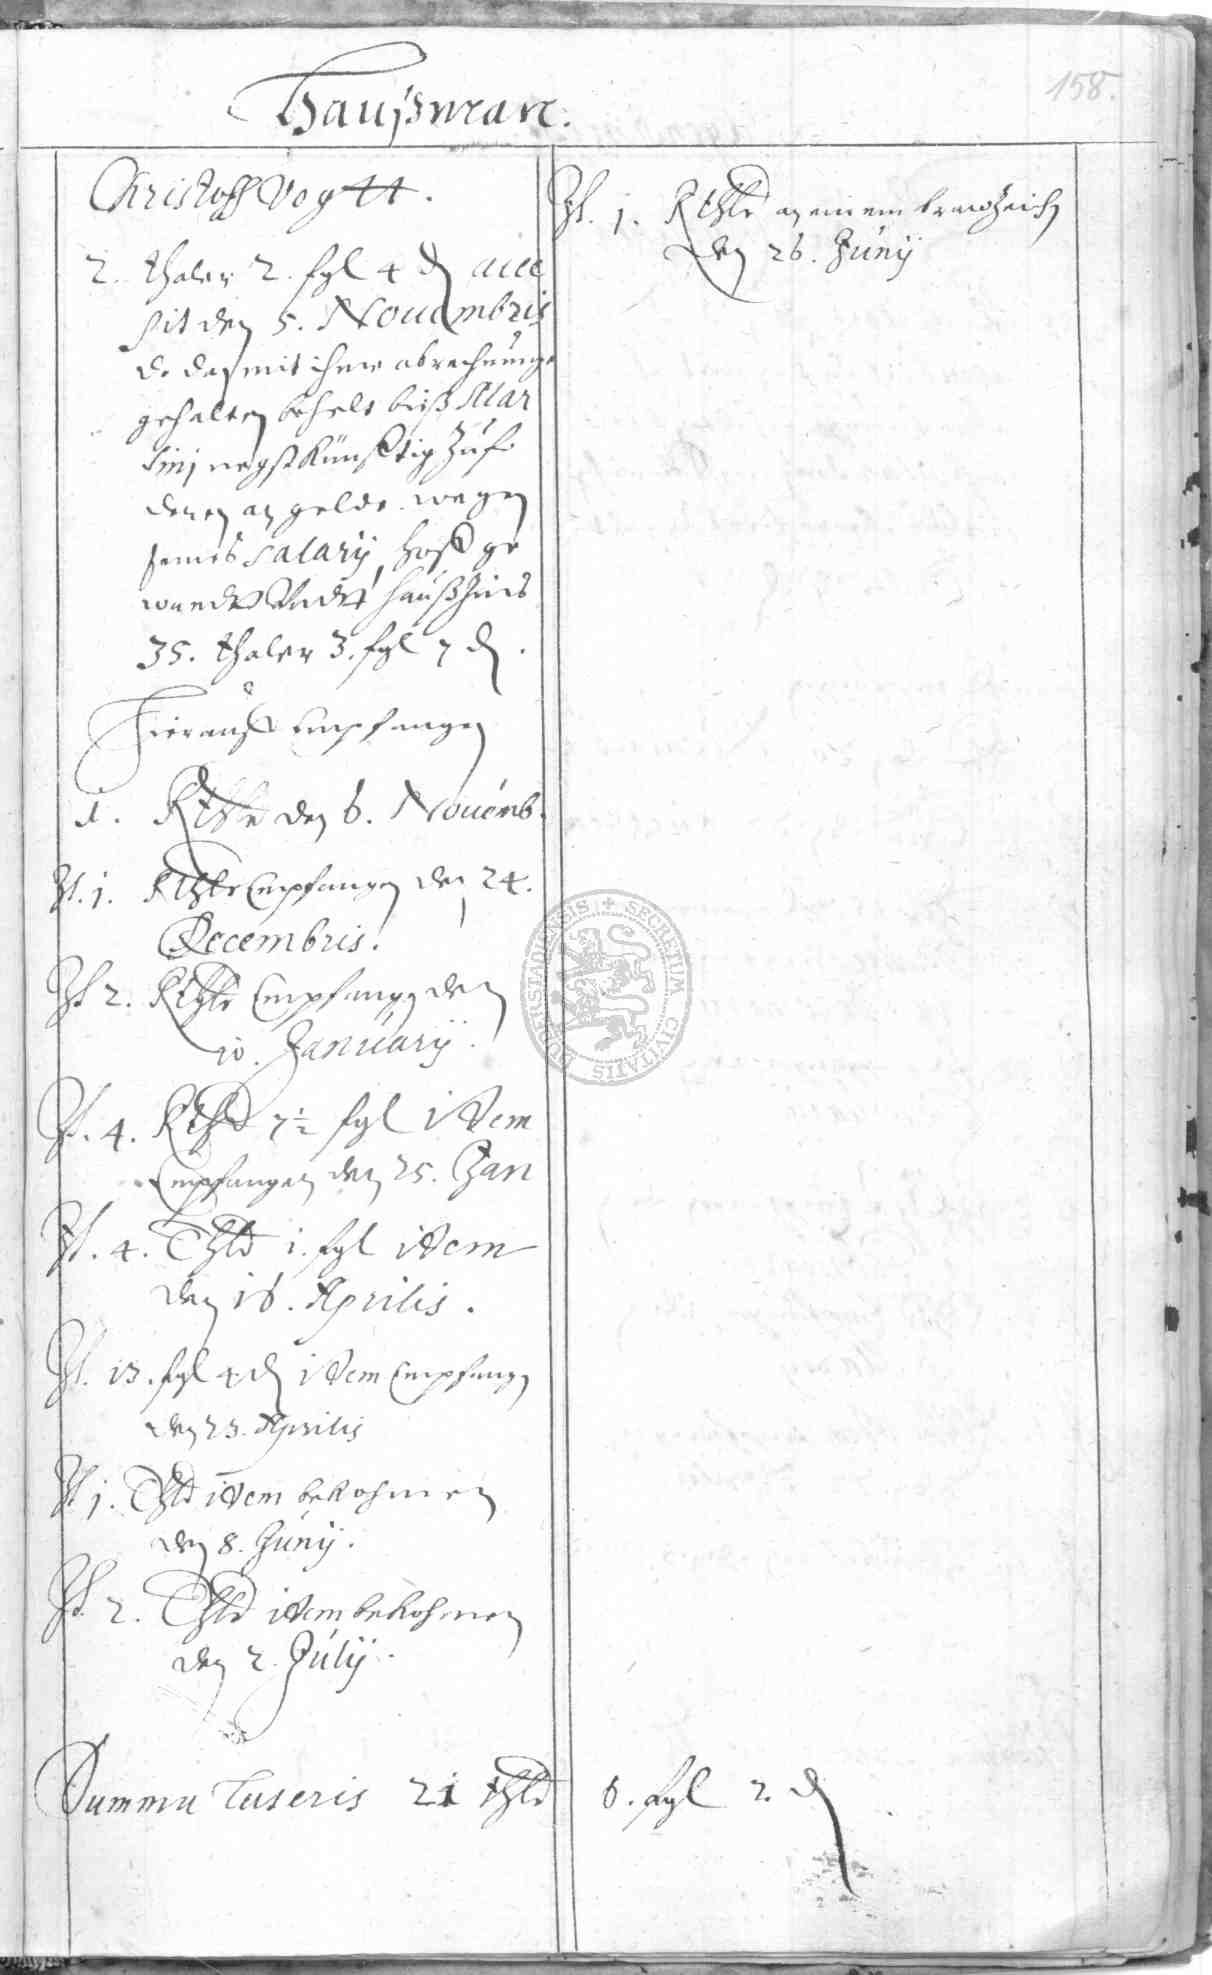 158.
Haußman.
Christoff Vogtt.
2. thaler 2. fgl 4 d
sit den 5. Nouembris
do daß mit ihme abrechnunge
gehalten behelt biß Mar
tinj negst künfftig zuf
denen an gelde wegen
seines Salarij, hoff ge
wandt Vndt haußzins
35. thaler 3. fgl 7 d.
Hierauff Empfangen
1. Rthlr den 6. Nouemb.
It. 1. Rthlr Empfangen den 24.
Decembris.
It 2. Rthlr Empfangen den
10. Januarij.
It. 4. Rthlr 7½ fgl item
Empfangen den 25. Jan
It. 4. Thlr 1. fgl item
den 16. Aprilis.
It. 13. fgl 4 d item Empfangen
den 23. Aprilis
It 1. Thlr item bekohmen
den 8. Junij.
It 2. Thlr item bekohmen
den 2. Julij.
It. 1. Rthlr an einem
den 26. Junij
Summa lateris 21 thlr 6. fgl 2. d
SECRETUM CIVITATIS DUDERSTADIENSIS